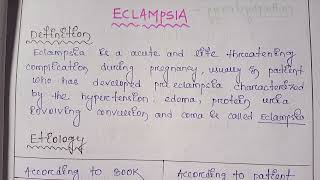 ECLAMPSIA
Definition
Eclampsia is a acute and life threatening
complication during pregnancy, usually in patient
who has developed pre eclampsia characterized
by the hypertension, edema, protein uria
involving convulsion and coma is called Eclampsia
Etiology
According to Book
According to patient